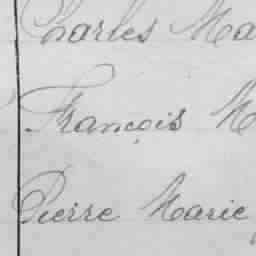 Charles Ma
François M
Pierre Marie